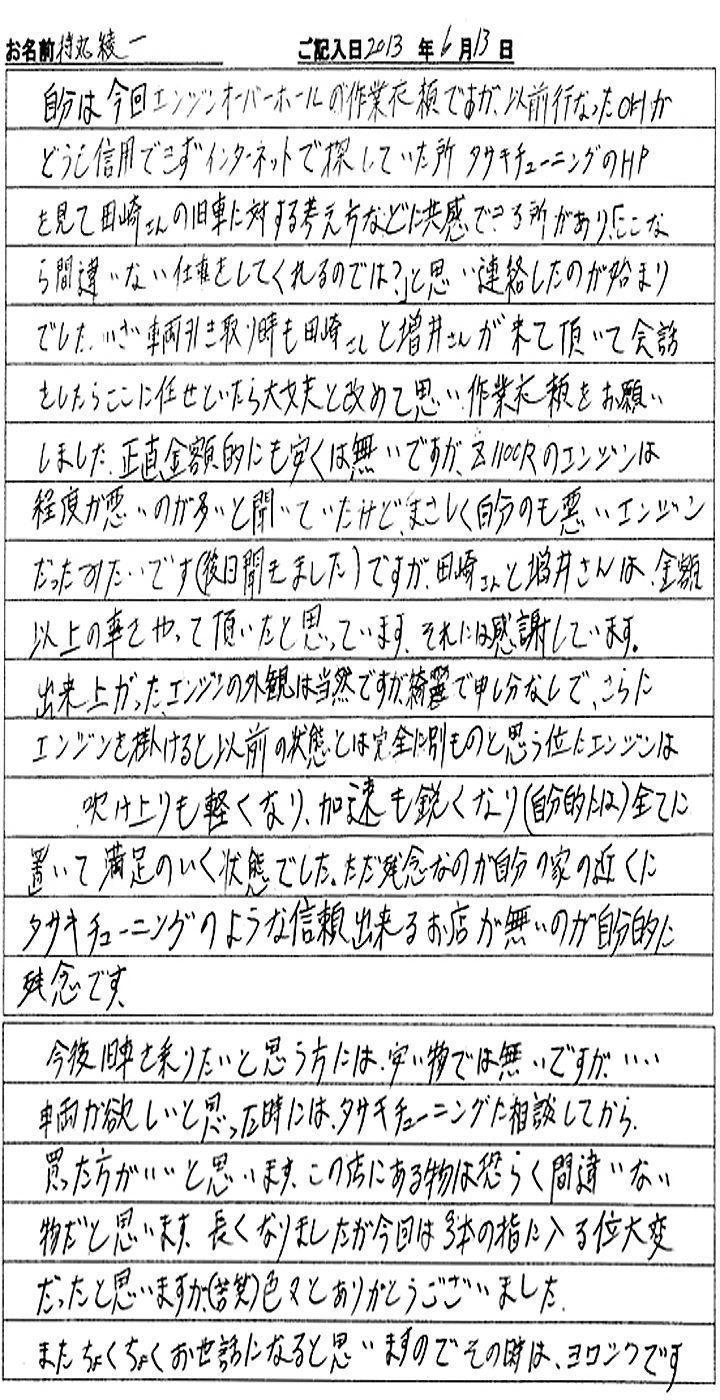 お名前 持丸 綾一 ご記入日 2013 年 6 月 13 日
自分は今回エンジンオーバーホールの作業依頼ですが、以前行なったOHが
どうも信用できずインターネットで探していた所 タサキチューニングのHP
を見て田崎さんの旧車に対する考え方などに共感できる所があり、「ここな
ら間違いない仕事をしてくれるのでは?」と思い連絡したのが始まり
でした、いざ車両引き取り時も田崎さんと増井さんが来て頂いて会話
をしたらここに任せといたら大丈夫と改めて思い作業依頼をお願い
しました、正直金額的にも安くは無いですが、Z1100Rのエンジンは
程度が悪いのが多いと聞いていたけど、まさしく自分のも悪いエンジン
だったみたいです(後日聞きました)ですが、田崎さんと増井さんは、金額
以上の事をやって頂いたと思っています、それには感謝しています。
出来上がった、エンジンの外観は当然ですが、綺麗で申し分なしで、さらに
エンジンを掛けると以前の状態とは完全に別ものと思う位にエンジンは
吹け上りも軽くなり、加速も鋭くなり(自分的には)全てに
置いて満足のいく状態でした、ただ残念なのが自分の家の近くに
タサキチューニングのような信頼出来るお店が無いのが自分的に
残念です、
今後旧車を乗りたいと思う方には、安い物では無いですが、‥‥
車両が欲しいと思った時には、タサキチューニングに相談してから、
買った方がいいと思います、この店にある物は恐らく間違いない
物だと思います、長くなりましたが今回は3本の指に入る位大変
だったと思いますが、(苦笑)色々とありがとうございました、
またちょくちょくお世話になると思いますのでその時は、ヨロシクです